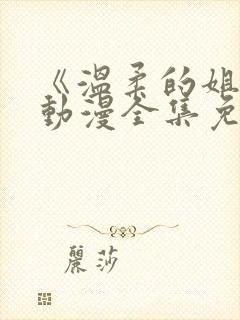 《温柔的姐
动漫全集免
麗莎